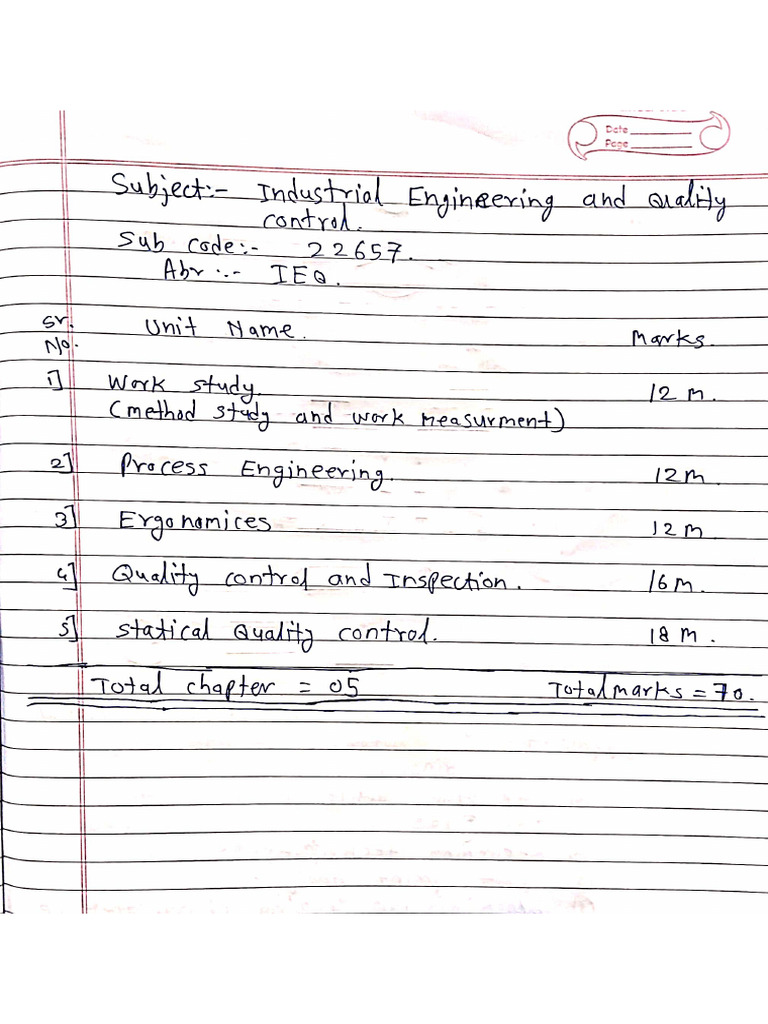 Date
Page
Subject:- Industrial Engineering and Quality
control.
Sub code:- 22657.
Abr :- IEQ.
Sr. No. Unit Name. Marks.
1] Work study 12 M.
(method study and work measurment)
2] Process Engineering. 12 M.
3] Ergonomices 12 M
4] Quality control and Inspection. 16 M.
5] Statical Quality control. 18 M.
Total chapter = 05 Total marks = 70.